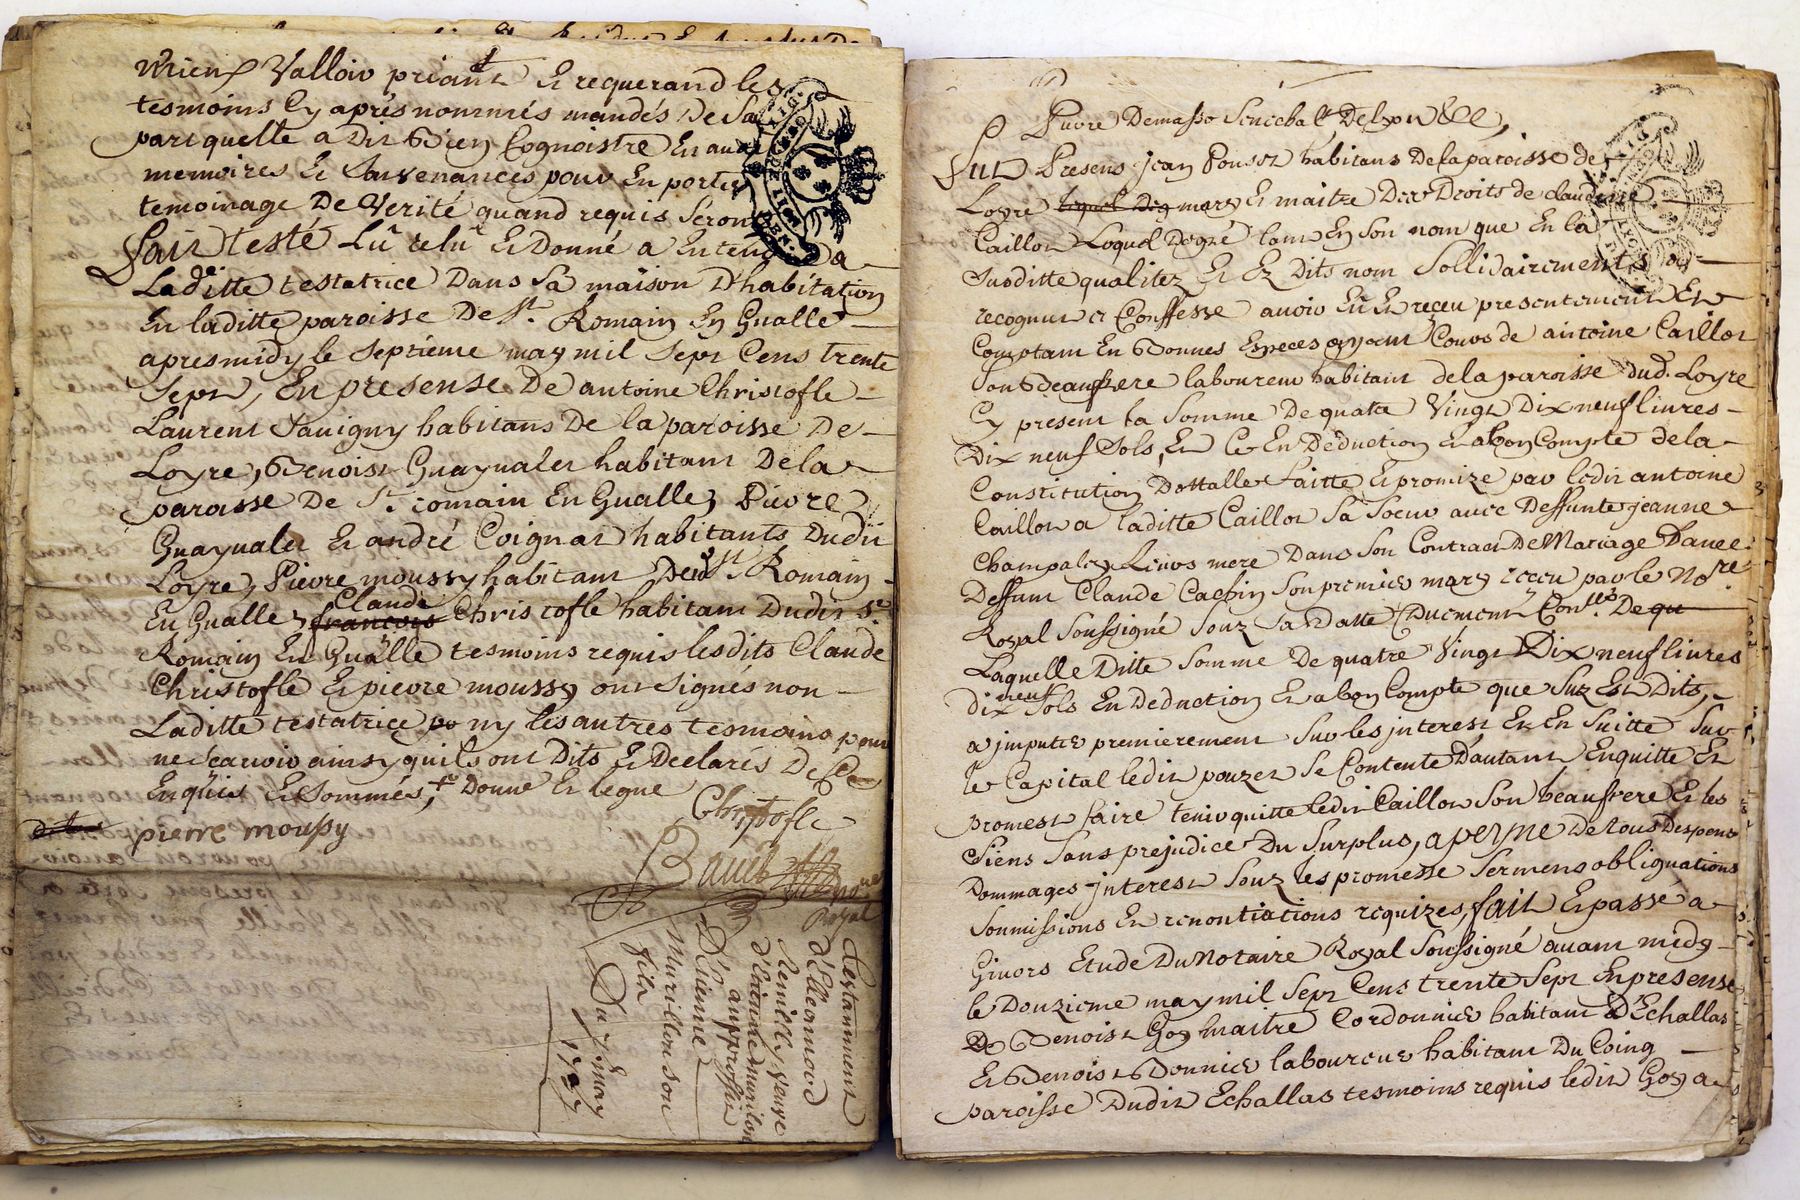 mieux Valloir priant Et requerand les
tesmoins Cy aprés nommés mandés de Sa
part quelle a dit Bien Cognoistre En avoir
memoires Et Souvenances pour En porter
temoinage De Verité quand requis Seront
fait testé Lû relû Et Donné a Entendre a
Laditte testatrice Dans Sa maison D'habitation
En laditte paroisse De St. Romain En Gualle
apres midy le Septieme may mil Sept Cens trente
Sept, En presense De antoine Christofle
Laurent Savigny habitans De la paroisse De
Loyre, Benoist Guaynalet habitant De la
paroisse De St. romain En Gualle, Pierre
Guaynalet Et andré Coignat habitants Dudit
Loyre, Pierre moussy habitant Dud. St. Romain
En Gualle, Claude
françois Christofle habitant Dudit St.
Romain En Gualle tesmoins requis lesdits Claude
Christofle Et pierre moussy ont Signés non
Laditte testatrice ny les autres tesmoins pour
ne Scavoir ainsy quils ont Dits Et Declarés De Ce
Enquis Et Sommés, + Donne Et legue
Christofle
pierre moussy
Royal
testamment
d'Elleonnord
Remilly veuve
d'Etienne murillon
au proffit
D'Etienne
Murillon son
fils
Du 7 may
1737
Par Devant
fut Presens jean Pouzet habitans De la paroisse de
Loyre lequel De mary Et maitre Des Droits de Claudine
Caillot Loquel De gré tant En Son nom que En la
Susditte qualitez Et Ez Dits nom Sollidairements a
recognut et Confesse avoir Eû Et reçeu presentement Et
Comptant En Bonnes Especes ayant Cours de antoine Caillot
Son Beaufrere laboureur habitant de la paroisse dud. Loyre
Cy present la Somme De quatre Vingt Dix neuf livres
Dix neuf Sols, Et Ce En Deduction Et a bon Compte de la
Constitution Dottalle faitte Et promize par ledit antoine
Caillot a laditte Caillot Sa Soeur avec Deffunte jeanne
Champaley Leurs mere Dans Son Contract De Mariage Davec
Deffunt Claude Cachin Son premier mary reçeu par le Nore.
Royal Soussigné Souz Sa Datte Duement Conllé De qu
Laquelle Ditte Somme De quatre Vingt Dix neuf livres
dix neuf Sols En Deduction Et a bon Compte que Suz Est Dits,
a jmputer premierement Sur les jnterest Et En Suitte Sur
le Capital ledit pouzet Se Contente D'autant En quitte Et
promest faire tenir quitte ledit Caillot Son beaufrere Et les
Siens Sans prejudice Du Surplus, a perme De tous Despens
Dommages jnterest Souz les promesse Sermens obliguations
Soumissions Et renontiations requizes, fait Et passé a
Givors Etude Du Notaire Royal Soussigné avant midy
le Douzieme may mil Sept Cens trente Sept En presense
De Benoist Goy maitre Cordonnier habitant D'Echallas
Et Benoist Bonnier laboureur habitant Du Coing
paroisse Dudit Echallas tesmoins requis ledit Goy a